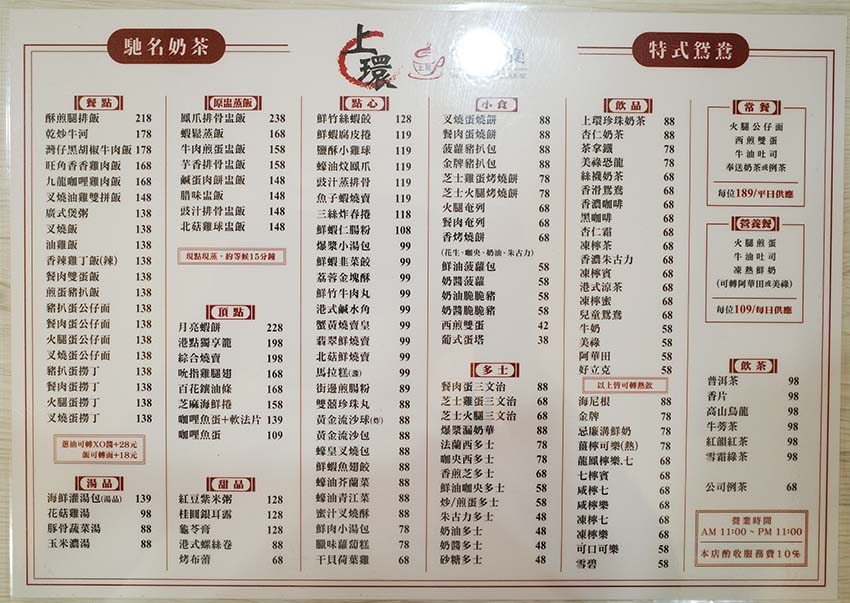 馳名奶茶
上環
特式鴛鴦
餐點
酥煎腿排飯 218
乾炒牛河 178
灣仔黑胡椒牛肉飯 178
旺角香香雞肉飯 168
九龍咖哩雞肉飯 168
叉燒油雞雙拼飯 148
廣式煲粥 138
叉燒飯 138
油雞飯 138
香辣雞丁飯(辣) 138
餐肉雙蛋飯 138
煎蛋豬扒飯 138
豬扒蛋公仔面 138
餐肉蛋公仔面 138
火腿蛋公仔面 138
叉燒蛋公仔面 138
豬扒蛋撈丁 138
餐肉蛋撈丁 138
火腿蛋撈丁 138
叉燒蛋撈丁 138
蔥油可轉XO醬+28元
飯可轉面+18元
湯品
海鮮灌湯包(湯品) 139
花菇雞湯 98
豚骨蔬菜湯 88
玉米濃湯 88
原盅蒸飯
鳳爪排骨盅飯 238
蝦鬆蒸飯 168
牛肉煎蛋盅飯 158
芋香排骨盅飯 158
鹹蛋肉餅盅飯 148
臘味盅飯 148
豉汁排骨盅飯 148
北菇雞球盅飯 148
現點現蒸，約等候15分鐘
頂點
月亮蝦餅 228
港點獨享籠 198
綜合燒賣 198
吮指雞腿翅 168
百花鑲油條 168
芝麻海鮮捲 158
咖哩魚蛋+軟法片 139
咖哩魚蛋 109
甜品
紅豆紫米粥 128
桂圓銀耳露 128
龜苓膏 128
港式螺絲卷 88
烤布蕾 68
點心
鮮竹絲蝦餃 128
鮮蝦腐皮捲 119
鹽酥小雞球 119
蠔油炆鳳爪 119
豉汁蒸排骨 119
魚子蝦燒賣 119
三絲炸春捲 118
鮮蝦仁腸粉 108
爆漿小湯包 99
鮮蝦韭菜餃 99
荔蓉金塊酥 99
鮮竹牛肉丸 99
港式鹹水角 99
蟹黃燒賣皇 99
翡翠鮮燒賣 99
北菇鮮燒賣 99
馬拉糕(湯) 99
街邊煎腸粉 89
雙囍珍珠丸 88
黃金流沙球(炸) 88
黃金流沙包 88
蠔皇叉燒包 88
鮮蝦魚翅餃 88
蠔油芥蘭菜 88
蠔油青江菜 88
蜜汁叉燒酥 88
鮮肉小湯包 78
臘味蘿蔔糕 78
干貝荷葉雞 68
小食
叉燒蛋燒餅 88
餐肉蛋燒餅 88
菠蘿豬扒包 88
金牌豬扒包 88
芝士雞蛋烤燒餅 78
芝士火腿烤燒餅 68
火腿奄列 68
餐肉奄列 68
香烤燒餅 68
(花生．咖央．奶油．朱古力)
鮮油菠蘿包 58
奶醬菠蘿包 58
奶油脆脆豬 58
奶醬脆脆豬 58
西煎雙蛋 42
葡式蛋塔 38
多士
餐肉蛋三文治 88
芝士雞蛋三文治 88
芝士火腿三文治 88
爆漿漏奶華 88
法蘭西多士 68
咖央西多士 68
香煎芝多士 68
鮮油咖央多士 58
炒/煎蛋多士 58
朱古力多士 48
奶油多士 48
奶醬多士 48
砂糖多士 48
飲品
上環珍珠奶茶 88
杏仁奶茶 88
茶拿鐵 78
美祿恐龍 78
絲襪奶茶 68
香滑鴛鴦 68
香濃咖啡 68
黑咖啡 68
杏仁霜 68
凍檸茶 68
香濃朱古力 68
凍檸賓 68
港式涼茶 68
凍檸蜜 68
兒童鴛鴦 68
牛奶 58
美祿 58
阿華田 58
好立克 58
以上皆可轉熱飲
海尼根 88
金牌 88
忌廉溝鮮奶 78
薑檸可樂(熱) 78
龍鳳檸樂.七 68
七檸賓 68
咸檸七 68
咸檸樂 68
凍檸七 68
凍檸樂 68
可口可樂 58
雪碧 58
常餐
火腿公仔面
西煎雙蛋
牛油吐司
奉送奶茶或例茶
每位189/平日供應
營養餐
火腿煎蛋
牛油吐司
凍熱鮮奶
(可轉阿華田或美祿)
每位109/每日供應
飲茶
普洱茶 98
香片 98
高山烏龍 98
牛蒡茶 98
紅韻紅茶 98
雪霜綠茶 98
公司例茶 68
營業時間
AM 11:00 ~ PM 11:00
本店酌收服務費10%